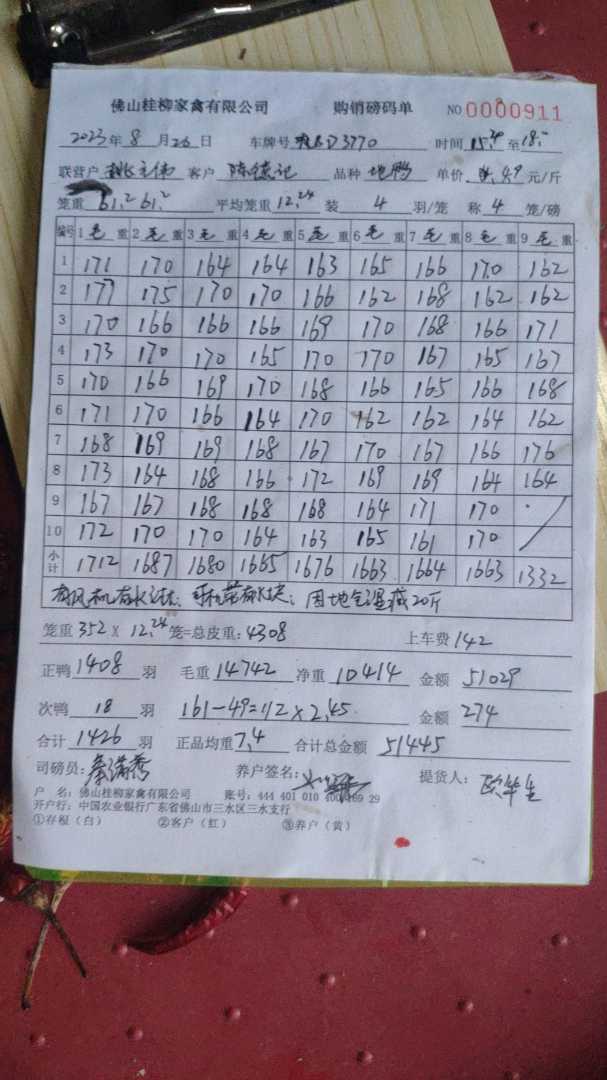 佛山桂柳家禽有限公司 购销磅码单 NO 0000911
2023年 8 月 26 日 车牌号 D3770 时间 15.30 至 18.
联营户 客户 陈德记 品种 地鸭 单价 4.9 元/斤
笼重 61.2 61.2 平均笼重 12.24 装 4 羽/笼 称 4 笼/磅
编号 1 毛 重 2 毛 重 3 毛 重 4 毛 重 5 毛 重 6 毛 重 7 毛 重 8 毛 重 9 毛 重
1 171 170 164 164 163 165 166 170 162
2 177 175 170 170 166 162 168 162 162
3 170 166 166 166 169 170 168 166 171
4 173 170 170 165 170 170 167 165 167
5 170 166 169 170 168 166 165 166 168
6 171 170 166 164 170 162 162 164 162
7 168 169 169 168 167 170 167 166 176
8 173 164 168 166 172 169 169 164 164
9 167 167 168 168 168 164 171 170
10 172 170 170 164 163 165 161 170
小计 1712 1687 1680 1665 1676 1663 1664 1663 1332
有风机有水 因地 湿减20斤
笼重 352 X 12.24 笼=总皮重: 4308 上车费 142
正鸭 1408 羽 毛重 14742 净重 10414 金额 51029
次鸭 18 羽 161-49=112×2.45 金额 274
合计 1426 羽 正品均重 7.4 合计总金额 51445
司磅员: 秦满秀 养户签名: 提货人:
户 名: 佛山桂柳家禽有限公司 账号: 444 401 010 400 169 29
开户行: 中国农业银行广东省佛山市三水区三水支行
①存根(白) ②客户(红) ③养户(黄)